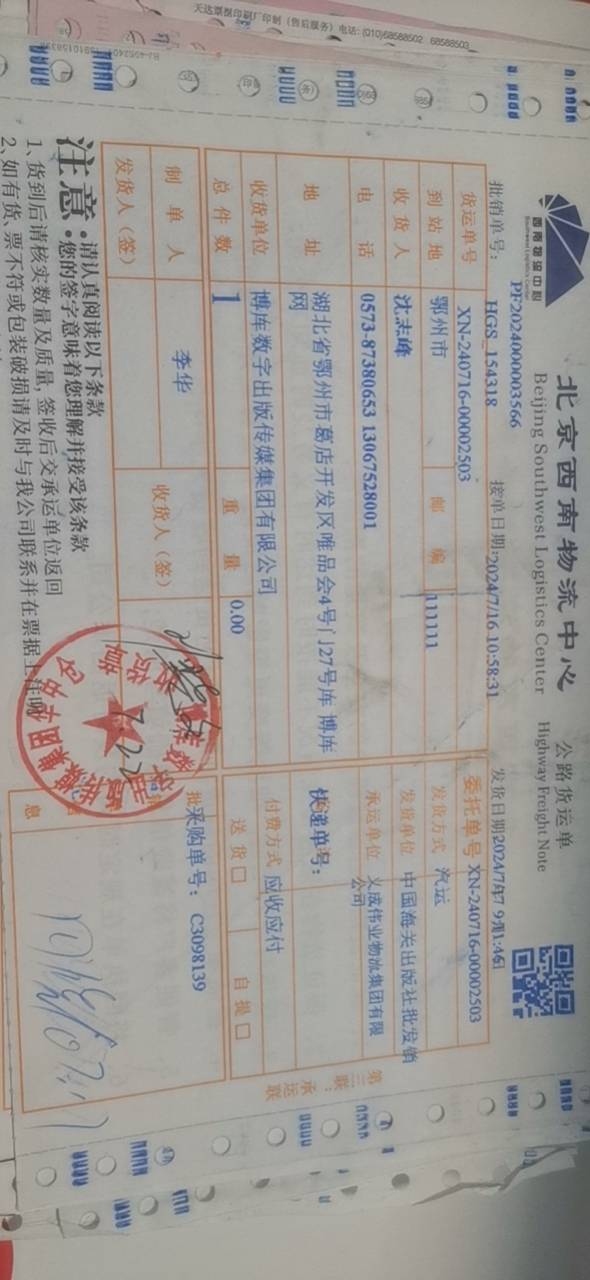 天达票据印刷厂印制（售后服务）电话：(010)68588502 68588503
西南物流中心
Southwest Logistics Center
北京西南物流中心
Beijing Southwest Logistics Center
公路货运单
Highway Freight Note
PF2024000003566
批销单号： HGS_154318
接单日期:2024/7/16 10:58:31
货运单号 XN-240716-00002503
委托单号 XN-240716-00002503
到站地 鄂州市 邮编 111111
发货方式 汽运
收货人 沈志峰
发货单位 中国海关出版社批发销
电话 0573-87380653 13067528001
承运单位 义成伟业物流集团有限公司
地址 湖北省鄂州市葛店开发区唯品会4号门27号库 博库网
快递单号：
收货单位 博库数字出版传媒集团有限公司
付费方式 应收应付
总件数 1 重量 0.00
送货□ 自提□
制单人 李华
收货人（签）
采购单号： C3098139
发货人（签）
第三联：承运联
注意：请认真阅读以下条款
您的签字意味着您理解并接受该条款
1、货到后请核实数量及质量, 签收后交承运单位返回
2、如有货、票不符或包装破损请及时与我公司联系并在票据上注明